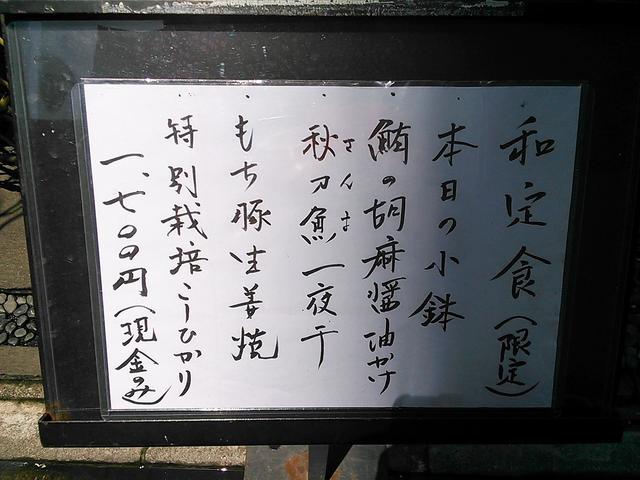 和定食（限定）
・本日の小鉢
・鮪の胡麻醤油かけ
・秋刀魚一夜干
さんま
・もち豚生姜焼
・特別栽培こしひかり
一、七〇〇円（現金のみ）